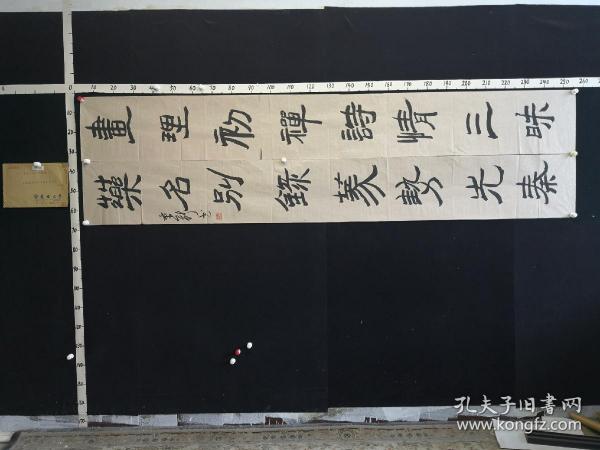 畫理初禪詩情三昧
藥名別錄篆勢先秦
孔夫子旧書网
www.kongfz.com